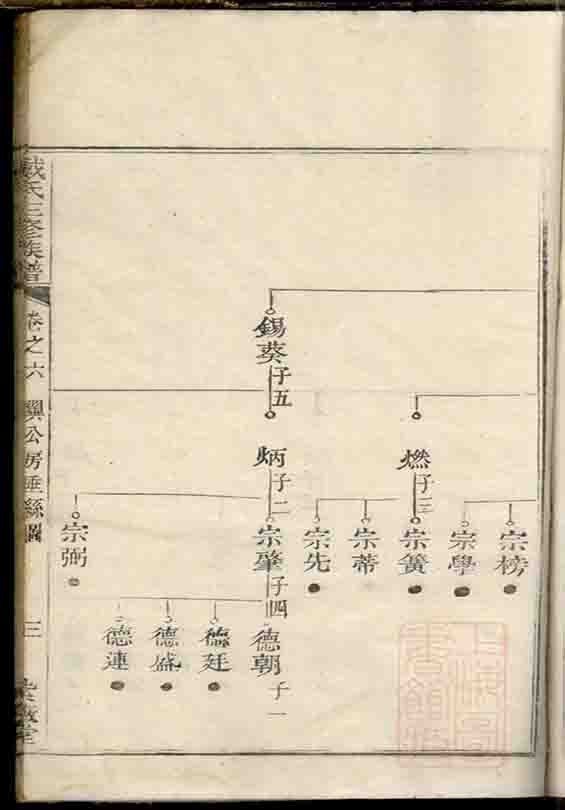 錫葵
子五
燃
子三
炳
子二
宗榜
宗學
宗簧
宗蒂
宗先
宗肇
子四
宗弼
德朝
子一
德廷
德盛
德連
戴氏三修族譜
卷之六
公房垂絲圖
三